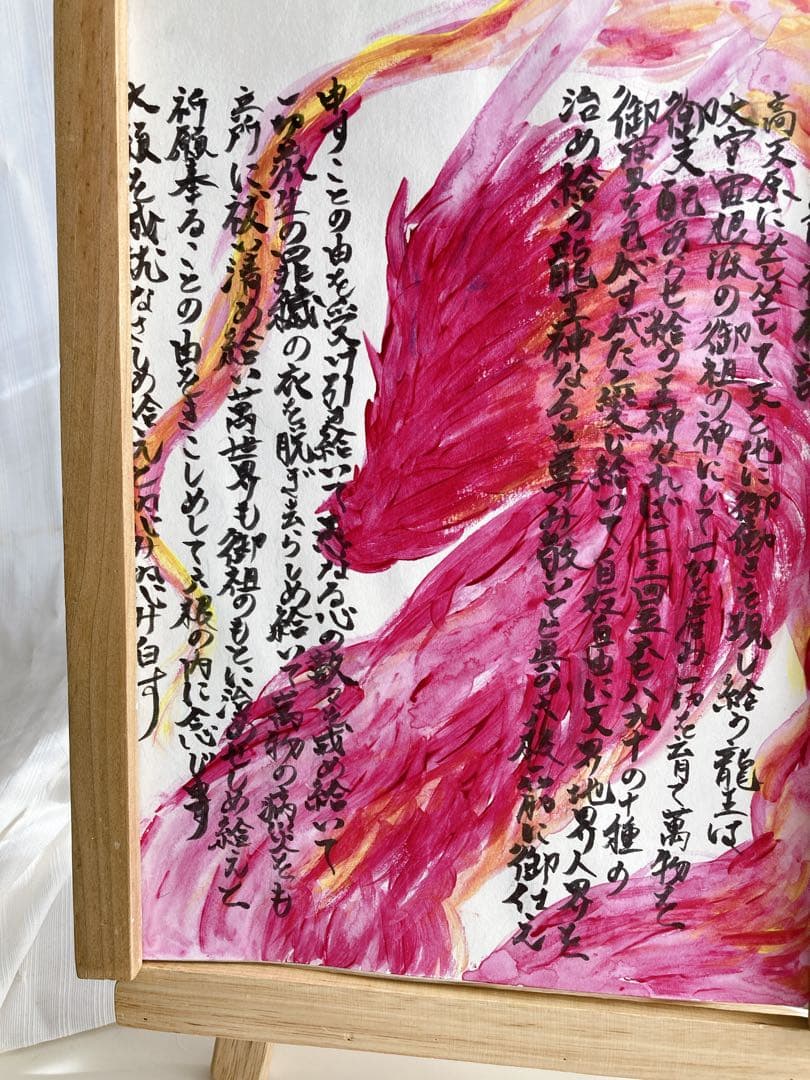 高天原に坐し坐して天と地に御働きを現し給う龍王は
大宇宙根源の御祖の神にして一切を産み一切を育て萬物を
御支配あらせ給う王神なれば一二三四五六七八九十の十種の
御寶を己がすがたと変じ給いて自在自由に天界地界人界を
治め給う龍王神なるを尊み敬いて眞の六根一筋に御仕え
申すことの由を受け引き給いて愚なる心の数々を戒め給いて
一切衆生の罪穢の衣を脱ぎ去らしめ給いて萬物の病災をも
立所に祓い清め給い萬世界も御祖のもとに治めせしめ給えと
祈願奉ることの由をきこしめして六根の内に念じ申す
大願を成就なさしめ給えと恐み恐み白す